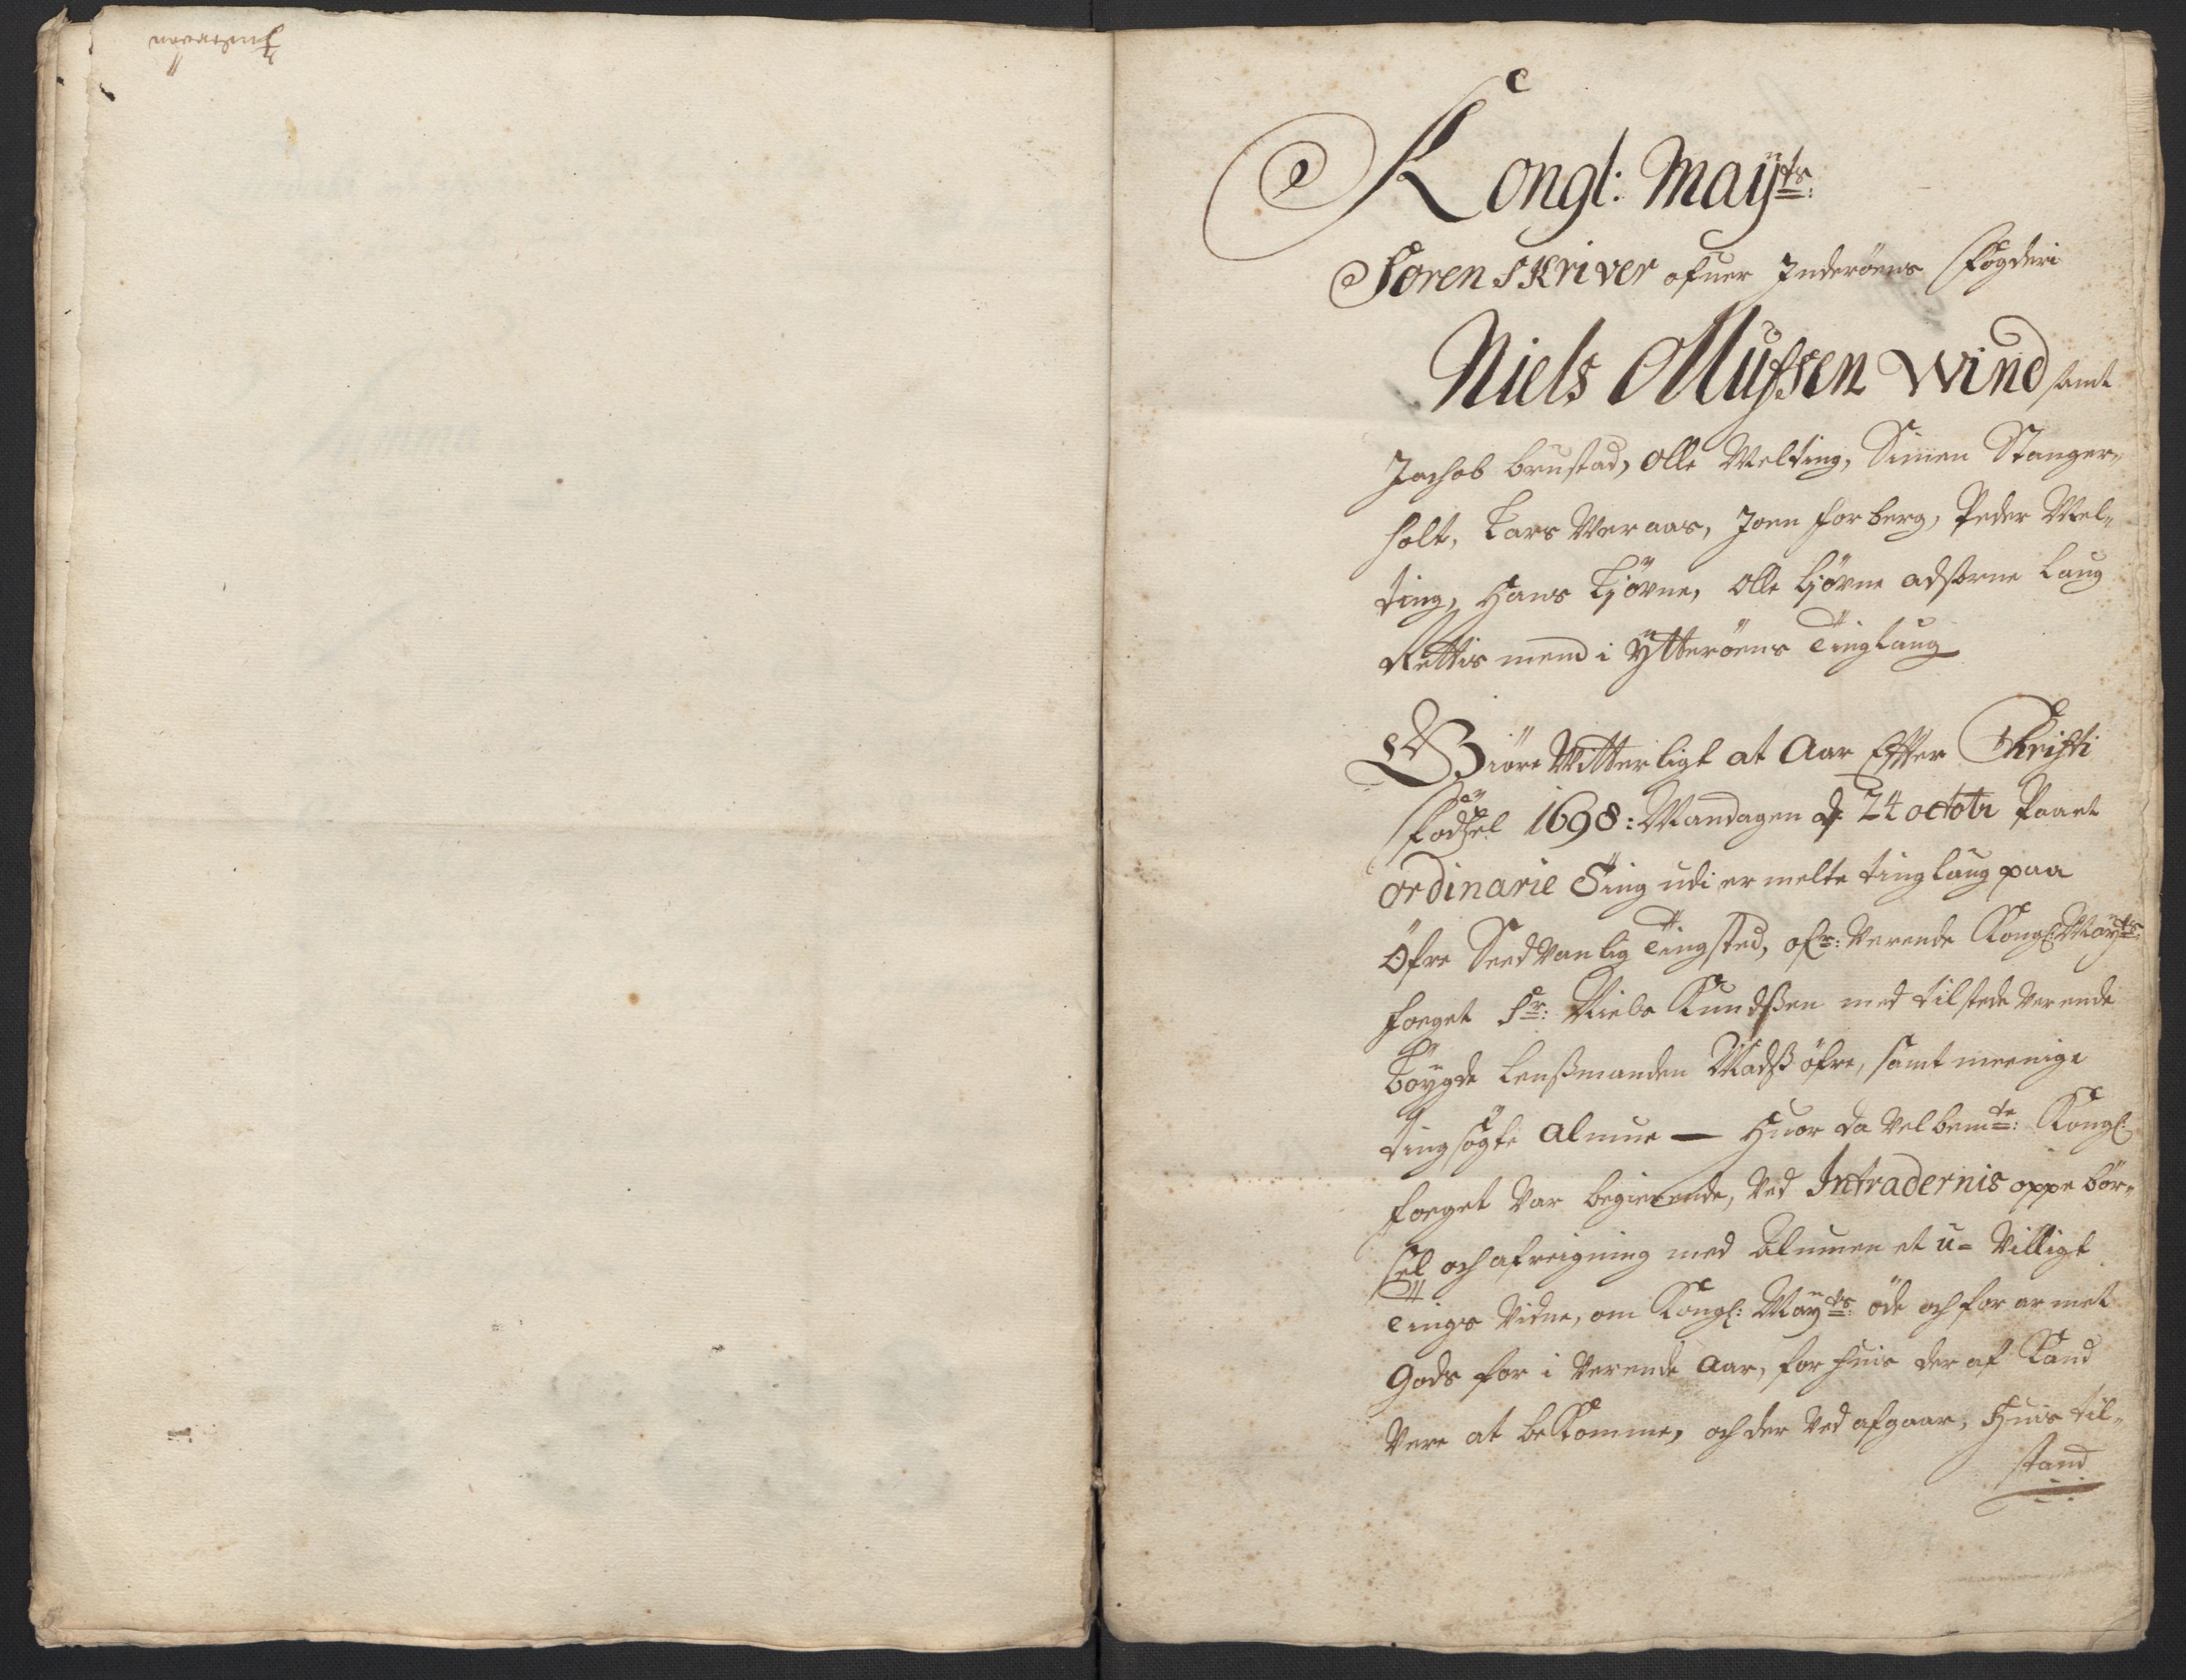 Kongl: Maÿts:
Soren Skriver ofuer Inderöens Fogderi
Niels Ollufsen Wind samt
Jachob Brustad, Olle Melting, Simen Stanger„
holt, Lars Weraas, Joen Forberg, Peder Mel„
ting, Hans Tjövne, Olle Tjövne Edsorne Laug
Rettis mend i Ÿtteröens Tinglaug
Giöre Witterligt at Aar Effter Christi
Födsel 1698: Mandagen d: 24 octobr Paaet
ordinarie Ting udi ermelte tinglaug paa
Öfre Seedvanlig Tingsted, ofr: Verende Kongl: Maÿts:
foeget Sr: Niels Knudsßen med tilstede Verende
Böygde Lenßmanden Madß öfre, samt meenige
tingsögte Almue — Huor da Velbemte: Kongl:
foeget Var begierende, Ved Intradernis oppebör„
sel och afreigning med Almuen et u= Villigt
Tings Vidne, om Kongl: Maÿts: öde och forarmet
Gods for i Verende Aar, for huis der af Kand
Vere at beKomme, och der Ved afgaar, Huis til„
stand